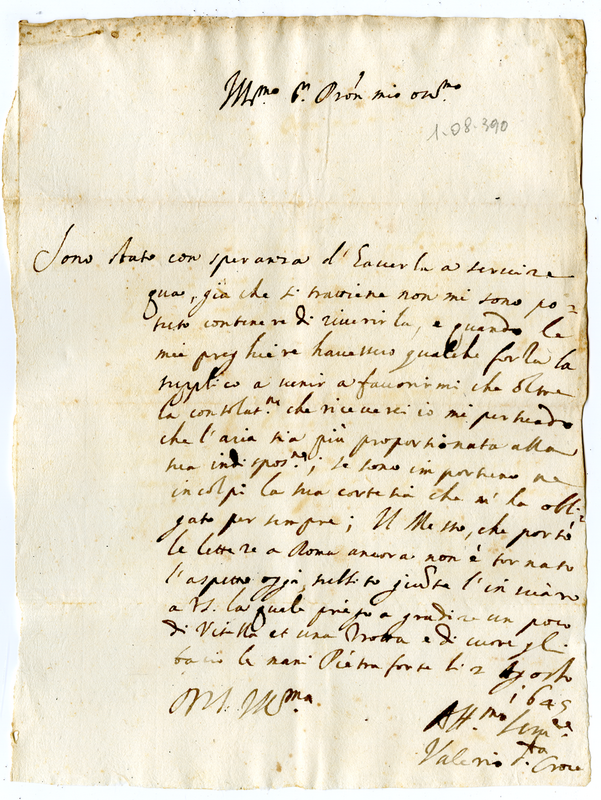 Ill.mo Sr. Prôn mio oss.mo
1-08-390
Sono stato con speranza d'Hauerla a seruire
qua, già che si trattiene non mi sono po=
tuto contenere di riuerirla, e quando le
mie preghiere hauessino qualche forza la
supplico a uenir a fauorirmi che oltre
la consolat.ne che riceuerei io mi persuado
che l'aria sia più proportionata alla
sua indispos.ne; se sono importuno ne
incolpi la sua cortesia che m'ha obli=
gato per sempre; Il Messo, che portò
le lettere a Roma ancora non è tornato
l'aspetto oggi, subbito giunto l'inuiarò
a VS. la quale priego a gradire un poco
di Vitella et una Trotta e di cuore gli
bacio le mani Pietraforte li 2 Agosto
1645
Di VS. Ill.ma
Aff.mo Ser.re
Valerio S.ta Croce